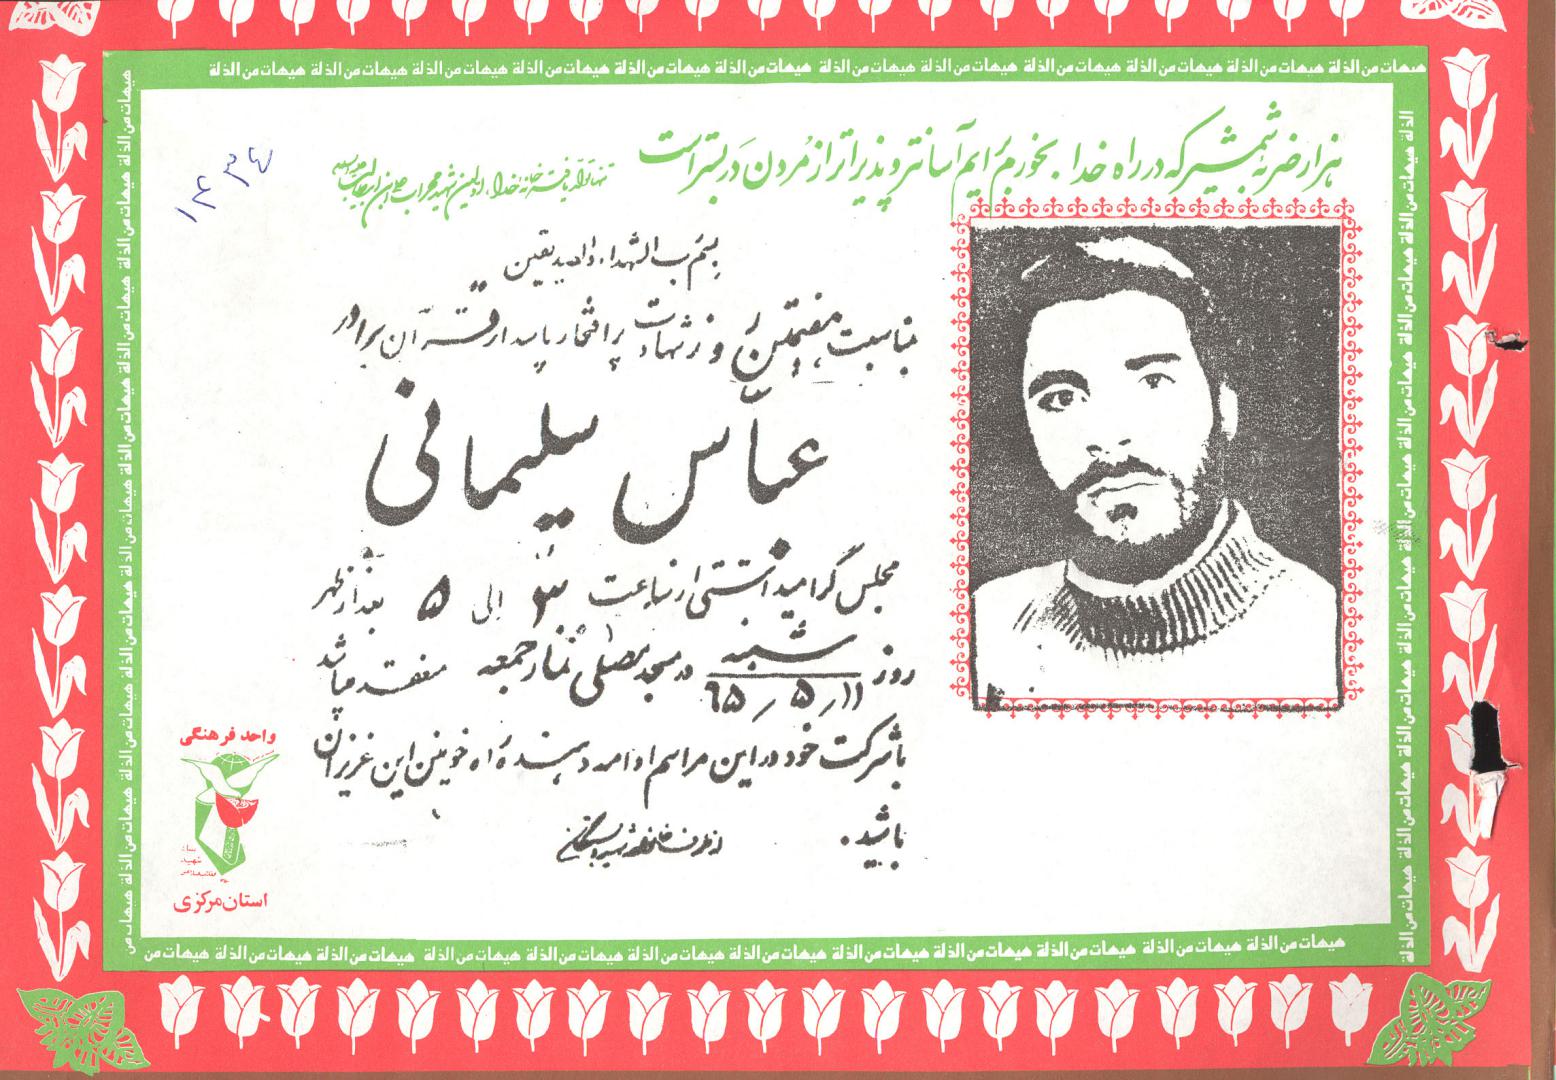 هیهات من الذلة هیهات من الذلة هیهات من الذلة هیهات من الذلة هیهات من الذلة هیهات من الذلة هیهات من الذلة هیهات من الذلة هیهات من الذلة هیهات من الذلة هیهات من الذلة هیهات من الذلة
هزار ضربه شمشیر که در راه خدا بخورم برایم آسانتر و پذیراتر از مردن در بستر است
خانه خدا، اولین شهید محراب علی ابن ابیطالب
۱۴۳۶
بسم رب الشهداء والصدیقین
بمناسبت هفتمین روز شهادت پر افتخار پاسدار قرآن برادر
عباس سلیمانی
مجلس گرامیداشتی از ساعت ۳ الی ۵ بعد از ظهر
روز شنبه ۱۱ / ۵ / ۶۵ در مسجد مصلی نماز جمعه منعقد میباشد
با شرکت خود در این مراسم ادامه دهنده راه خونین این عزیزان
باشید.
از طرف خانواده شهید و بستگان
واحد فرهنگی
بنیاد
شهید
استان مرکزی
هیهات من الذلة هیهات من الذلة هیهات من الذلة هیهات من الذلة هیهات من الذلة هیهات من الذلة هیهات من الذلة هیهات من الذلة هیهات من الذلة هیهات من الذلة هیهات من الذلة هیهات من